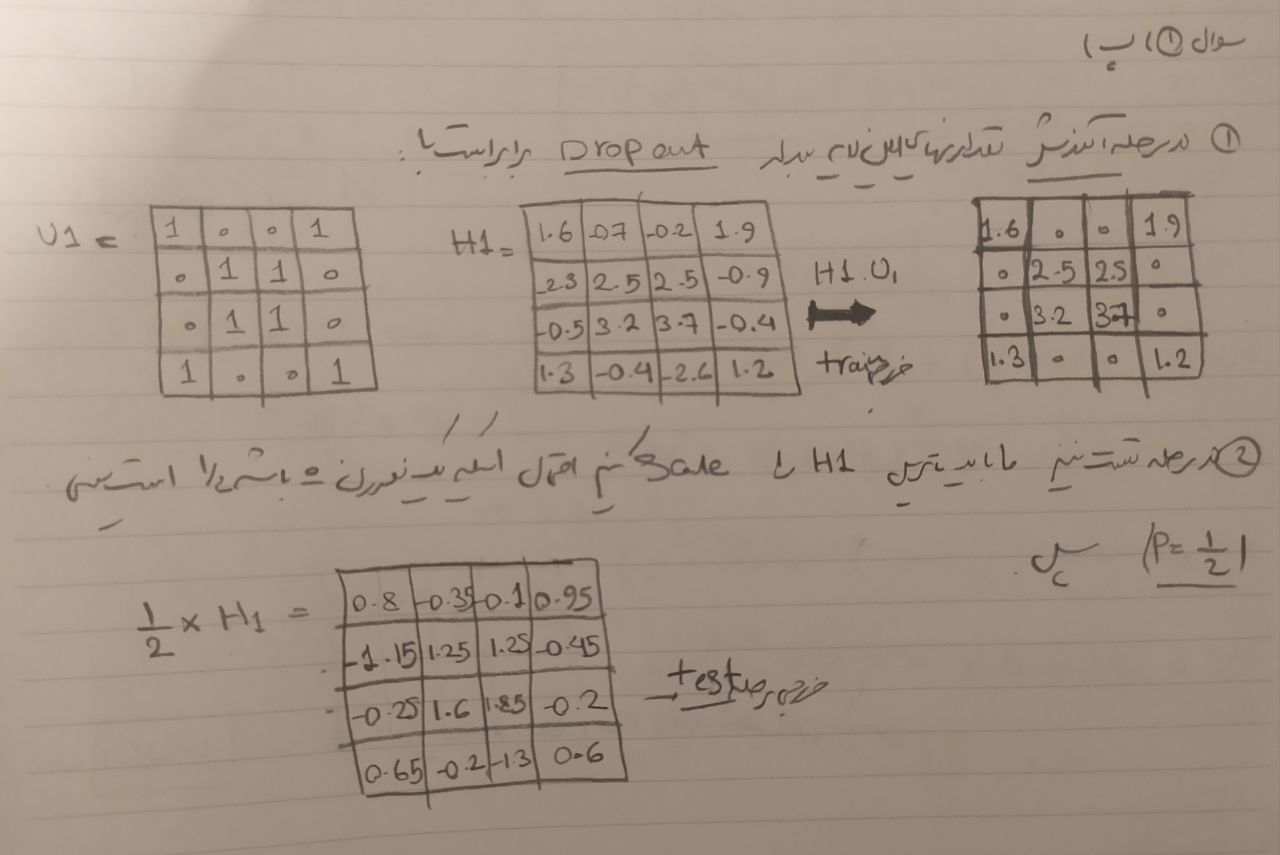 سوال ① (ب)
① در مرحله آموزش تعداد نرونهای این لایه بعد از Drop out برابر است با:
U1 =
1 0 0 1
0 1 1 0
0 1 1 0
1 0 0 1
H1 =
1.6 -0.7 -0.2 1.9
-2.3 2.5 2.5 -0.9
-0.5 3.2 3.7 -0.4
1.3 -0.4 -2.6 1.2
H1.U1
خروجی train
1.6 0 0 1.9
0 2.5 2.5 0
0 3.2 3.7 0
1.3 0 0 1.2
② در مرحله تست نیز ما باید H1 را Scale کنیم احتمال اینکه یک نورون 0 باشد 1/2 است یعنی
(P = 1/2) پس
1/2 × H1 =
0.8 -0.35 -0.1 0.95
-1.15 1.25 1.25 -0.45
-0.25 1.6 1.85 -0.2
0.65 -0.2 -1.3 0.6
→ خروجی مرحله test